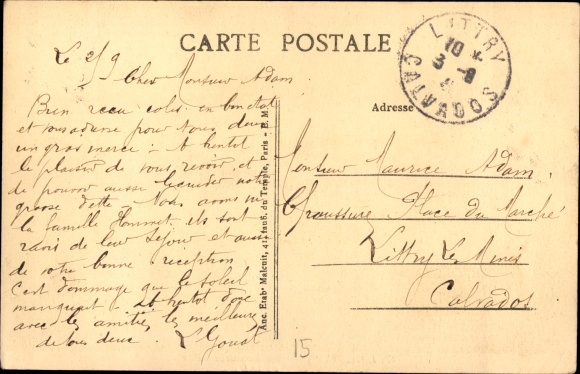 CARTE POSTALE
LITTRY
10 *
3 - 9
CALVADOS
Le 2/9
Cher Monsieur Adam
Bien reçu colis en bon état
et vous adresse pour nous deux
un gros merci - A bientôt
le plaisir de vous revoir et
de pouvoir aussi liquider notre
grosse dette - Nous avons vu
la famille Hommet ils sont
ravis de leur séjour et aussi
de votre bonne réception
c'est dommage que le soleil
manquait - A bientôt donc
avec les amitiés les meilleures
de tous deux.
Anc. Etabts Malcuit, 41 faub. du Temple, Paris - E. M.
Adresse
Monsieur Maurice Adam.
Chaussure Place du Marché
Littry Les Mines
Calvados
15